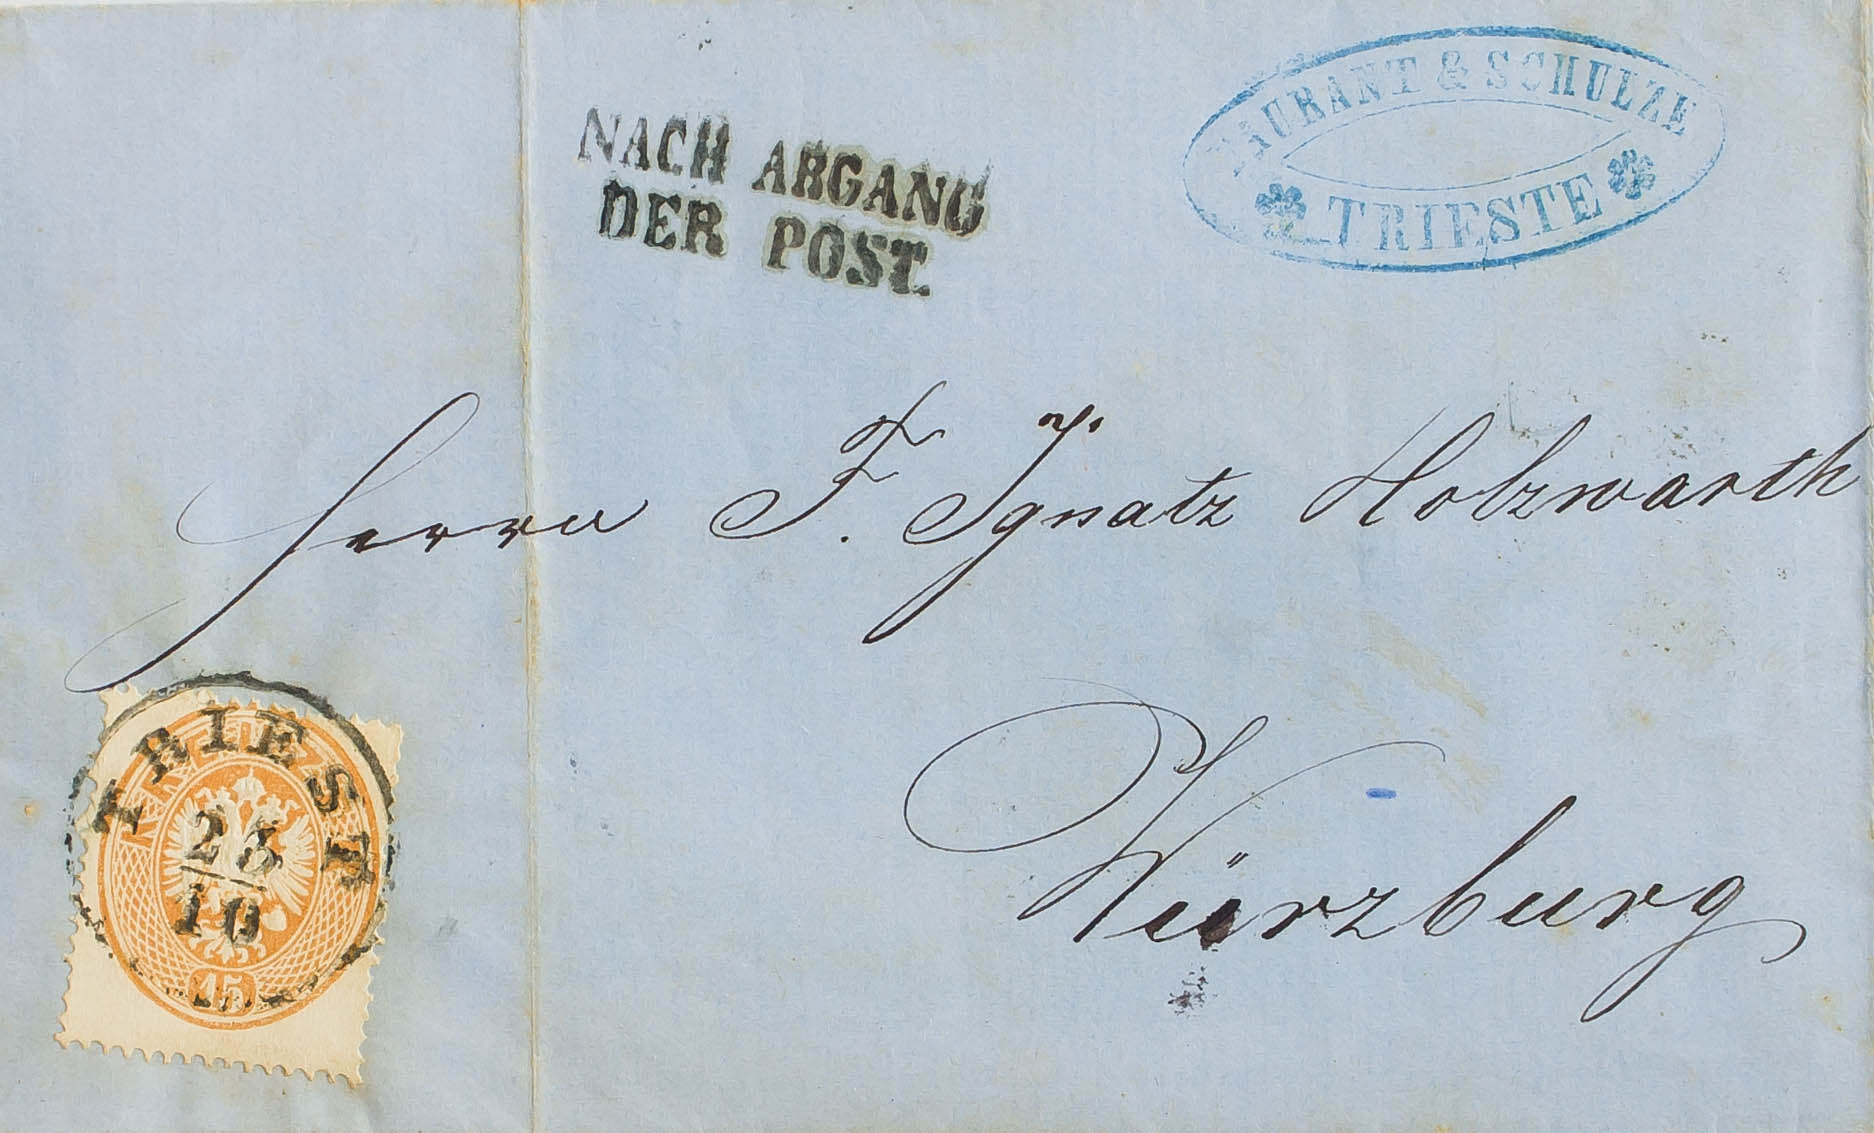 NACH ABGANG
DER POST.
& SCHULZE
TRIESTE
Herrn F. Ignatz Holzwarth
Würzburg
TRIEST
23
10
15